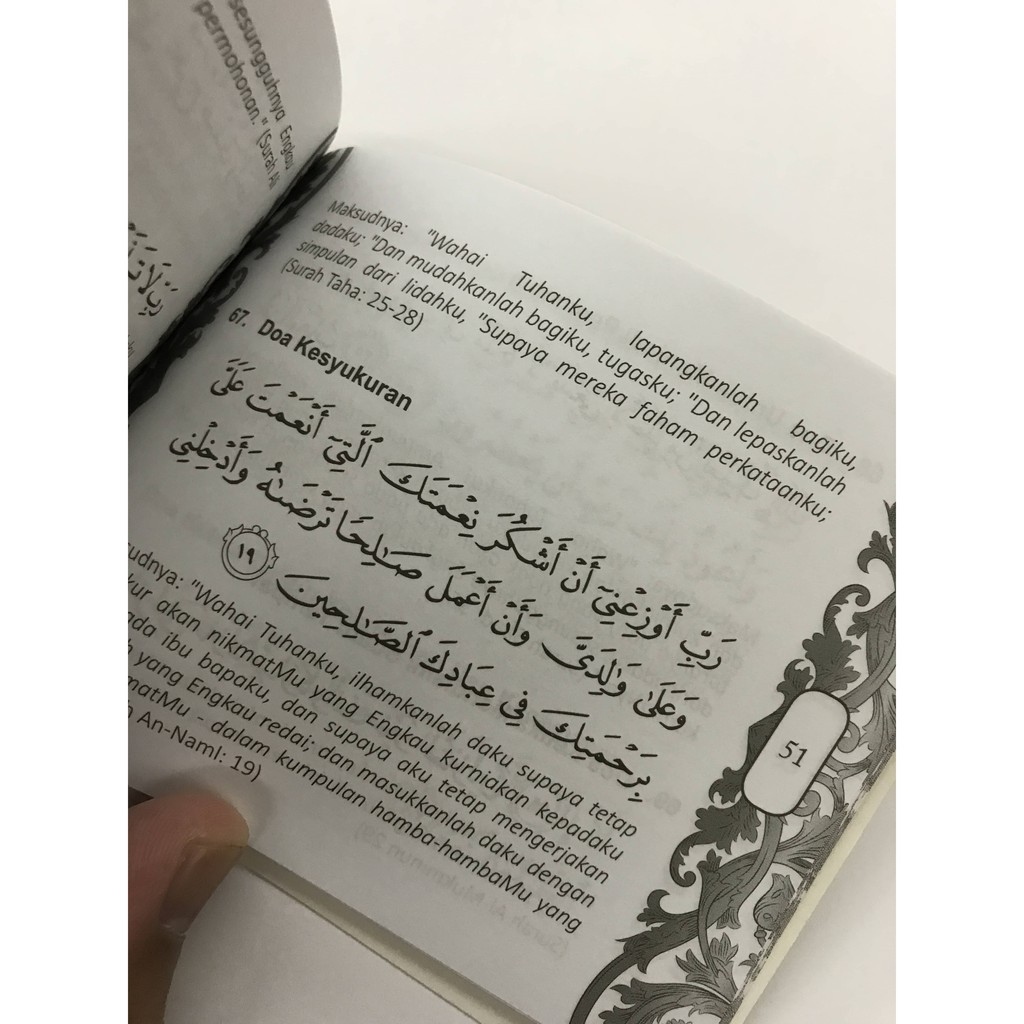 sesungguhnya Engkau
permohonan." (Surah Ali
Maksudnya: "Wahai Tuhanku, lapangkanlah bagiku,
dadaku; "Dan mudahkanlah bagiku, tugasku; "Dan lepaskanlah
simpulan dari lidahku, "Supaya mereka faham perkataanku;
(Surah Taha: 25-28)
67. Doa Kesyukuran
رَبِّ أَوْزِعْنِىٓ أَنْ أَشْكُرَ نِعْمَتَكَ ٱلَّتِىٓ أَنْعَمْتَ عَلَىَّ
وَعَلَىٰ وَٰلِدَىَّ وَأَنْ أَعْمَلَ صَـٰلِحًا تَرْضَىٰهُ وَأَدْخِلْنِى
بِرَحْمَتِكَ فِى عِبَادِكَ ٱلصَّـٰلِحِينَ ١٩
udnya: "Wahai Tuhanku, ilhamkanlah daku supaya tetap
kur akan nikmatMu yang Engkau kurniakan kepadaku
ada ibu bapaku, dan supaya aku tetap mengerjakan
h yang Engkau redai; dan masukkanlah daku dengan
matMu - dalam kumpulan hamba-hambaMu yang
An-Naml: 19)
51